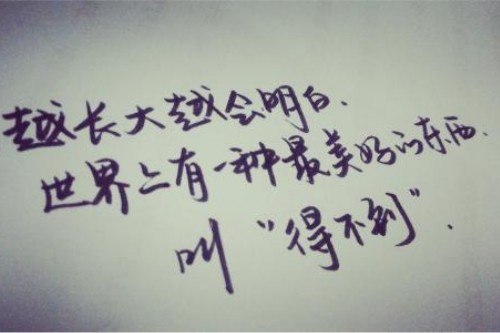 越长大越会明白.
世界上有一种最美好的东西.
叫“得不到”.